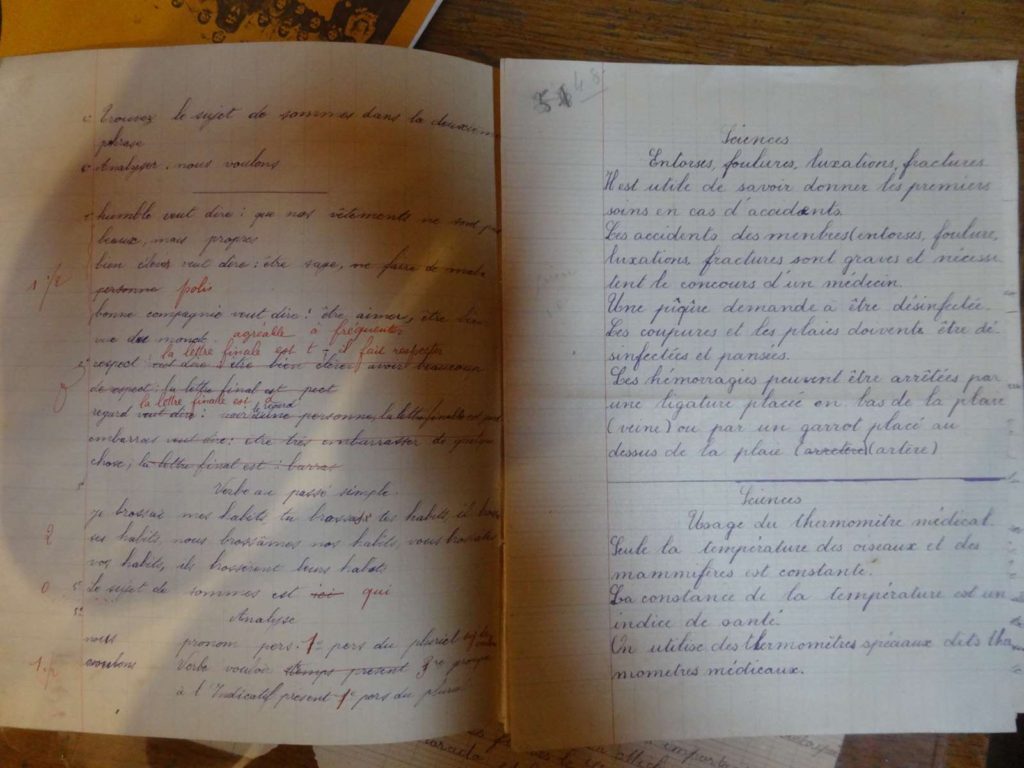 Trouvez le sujet de sommes dans la deuxième
phrase
Analyser: nous voulons
humble veut dire: que nos vêtements ne sont pas
beaux, mais propres
bien élevés veut dire: être sage, ne faire de mal
personne polis
bonne compagnie veut dire: être aimer, être bien
vue du monde. agréable à fréquenter
la lettre finale est t; il fait respecter
respect être bien élever avoir beaucoup
de respect; la lettre final est pect
la lettre finale est d
regard veut dire: le regard d'une personne, la lettre finale est
embarras veut dire: être très embarrasser de quelque
chose; la lettre final est: barras
Verbe au passé simple.
je brossai mes habits, tu brossas tes habits, il brossa
ses habits, nous brossâmes nos habits, vous brossates
vos habits, ils brossèrent leurs habits
2
0 Le sujet de sommes est ici qui
Analyse
nous pronom pers. 1re pers du pluriel
voulons Verbe vouloir temps present 3e groupe
à l'Indicatif present 1e pers du pluriel
48
Sciences
Entorses, foulures, luxations, fractures
Il est utile de savoir donner les premiers
soins en cas d'accidents.
Les accidents des menbres (entorses, foulure,
luxations, fractures sont graves et nécessi
tent le concours d'un médecin.
Une piqûre demande a être désinfectée.
Les coupures et les plaies doivent être dé
sinfectées et pansées.
Les hémorragies peuvent être arrêtées par
une ligature placée en bas de la plaie
(veine) ou par un garrot placé au
dessus de la plaie (arretère) (artère)
Sciences
Usage du thermomètre médical.
Seule la température des oiseaux et des
mammifères est constante.
La constance de la température est un
indice de santé.
On utilise des thermomètres spéciaux dits the
momètres médicaux.